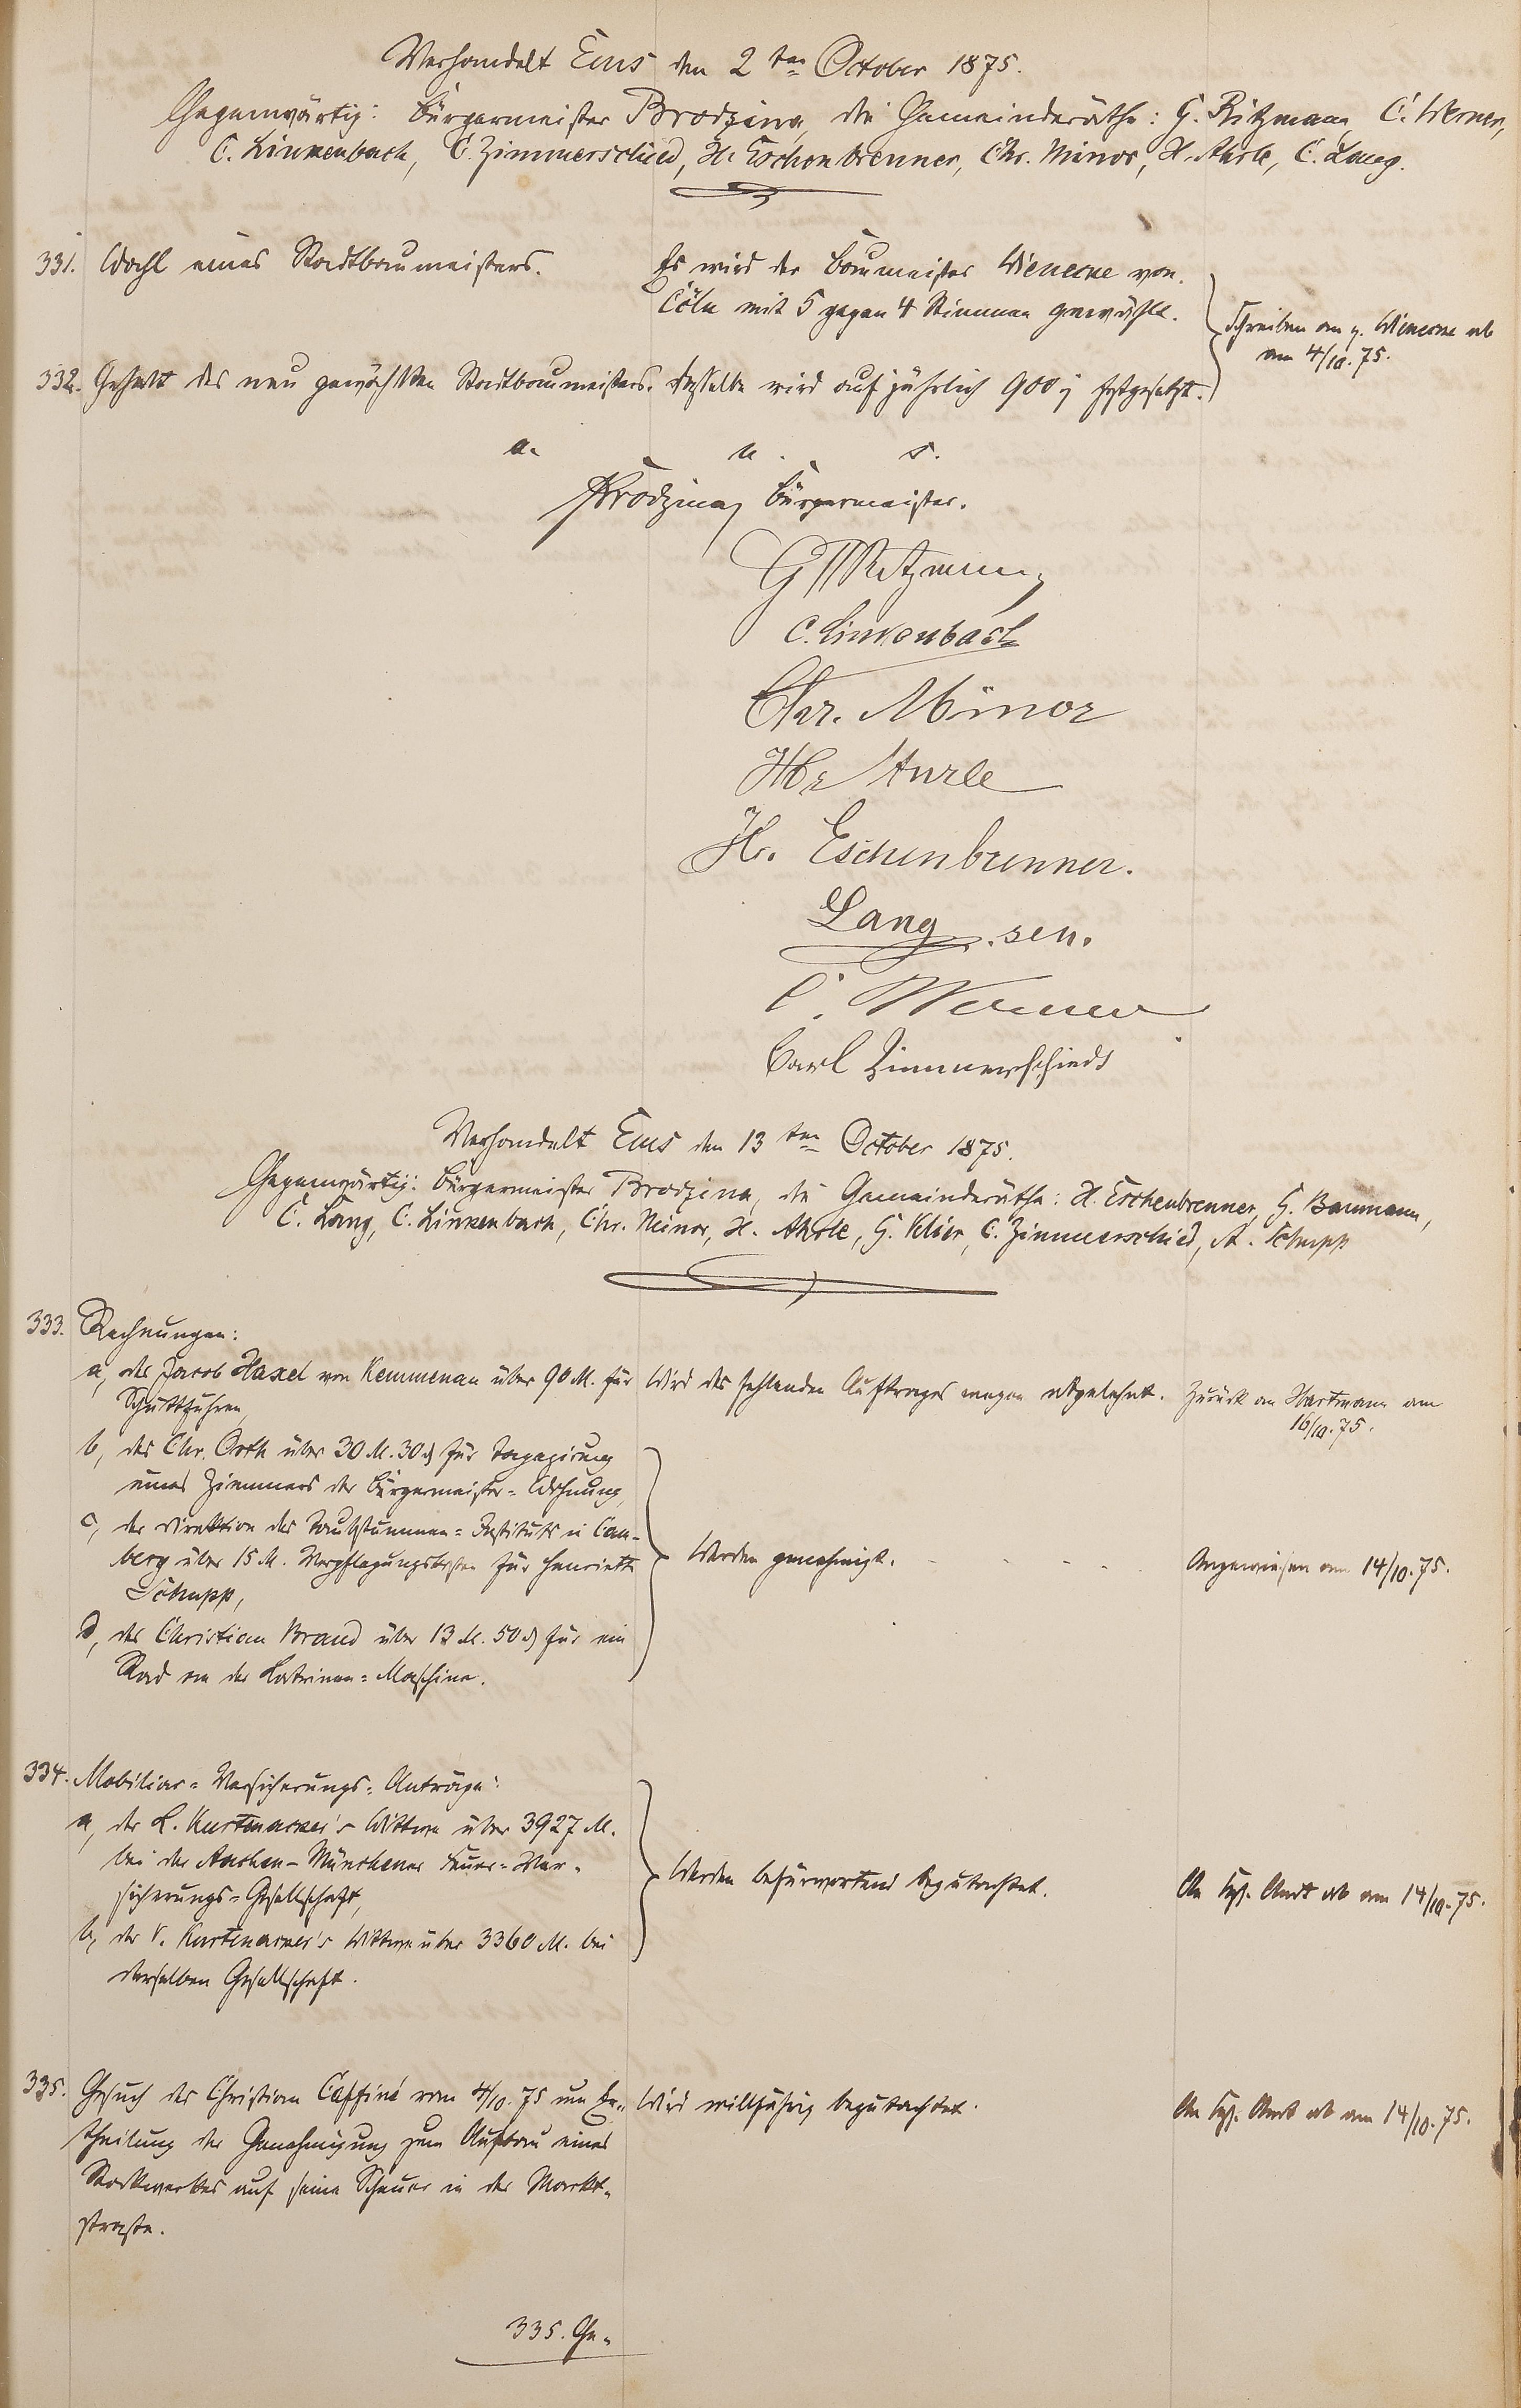 Verhandelt Ems den 2ten October 1875.
Gegenwärtig: Bürgermeister Brodzina, die Gemeinderäthe: G. Ritzmann, C. Werner,
C. Linkenbach, C. Zimmerschied, H. Eschenbrenner, Chr. Minor, H. Ahrle, C. Lang.
331. Wahl eines Stadtbaumeisters.
Es wird der Baumeister Wienecke von
Cöln mit 5 gegen 4 Stimmen gewählt.
Schreiben an p. Wienecke ab
am 4/10. 75.
332. Gehalt des neu gewählten Stadtbaumeisters.
Dasselbe wird auf jährlich 900 festgesetzt.
a. u. s.
Brodzina, Bürgermeister.
G Ritzmann
C. Linkenbach
Chr. Minor
Hr Ahrle
Hr. Eschenbrenner.
Lang sen.
C. Werner
Carl Zimmerschied
Verhandelt Ems den 13ten October 1875.
Gegenwärtig: Bürgermeister Brodzina, die Gemeinderäthe: H. Eschenbrenner, G. Baumann,
C. Lang, C. Linkenbach, Chr. Minor, H. Ahrle, G. Klöer, C. Zimmerschied, A. Schupp
333. Rechnungen:
a, des Jacob Haxel von Kemmenau über 90 M. für
Schuttfuhren,
Wird des fehlenden Auftrages wegen abgelehnt.
Zurück an Hartmann am
16/10. 75.
b, des Chr. Orth über 30 M. 30 ₰ für Tapezirung
eines Zimmers der Bürgermeister=Wohnung,
c, der Direktion des Taubstummen=Instituts in Cam-
berg über 15 M. Verpflegungskosten für Henriette
Schupp,
d, des Christian Brand über 13 M. 50 ₰ für ein
Rad an der Latrinen=Maschine.
Werden genehmigt.
Angewiesen am 14/10. 75.
334. Mobiliar=Versicherungs=Anträge:
a, der L. Kurtenacker's Wittwe über 3927 M.
bei der Aachen-Münchener Feuer=Ver-
sicherungs=Gesellschaft,
b, der V. Kurtenacker's Wittwe über 3360 M. bei
derselben Gesellschaft.
Werden befürwortend begutachtet.
An Kgl. Amt ab am 14/10. 75.
335. Gesuch des Christian Caffiné vom 4/10. 75 um Er=
theilung der Genehmigung zum Aufbau eines
Stockwerkes auf seine Scheuer in der Markt=
straße.
Wird willfährig begutachtet.
An Kgl. Amt ab am 14/10. 75.
335. Ge=